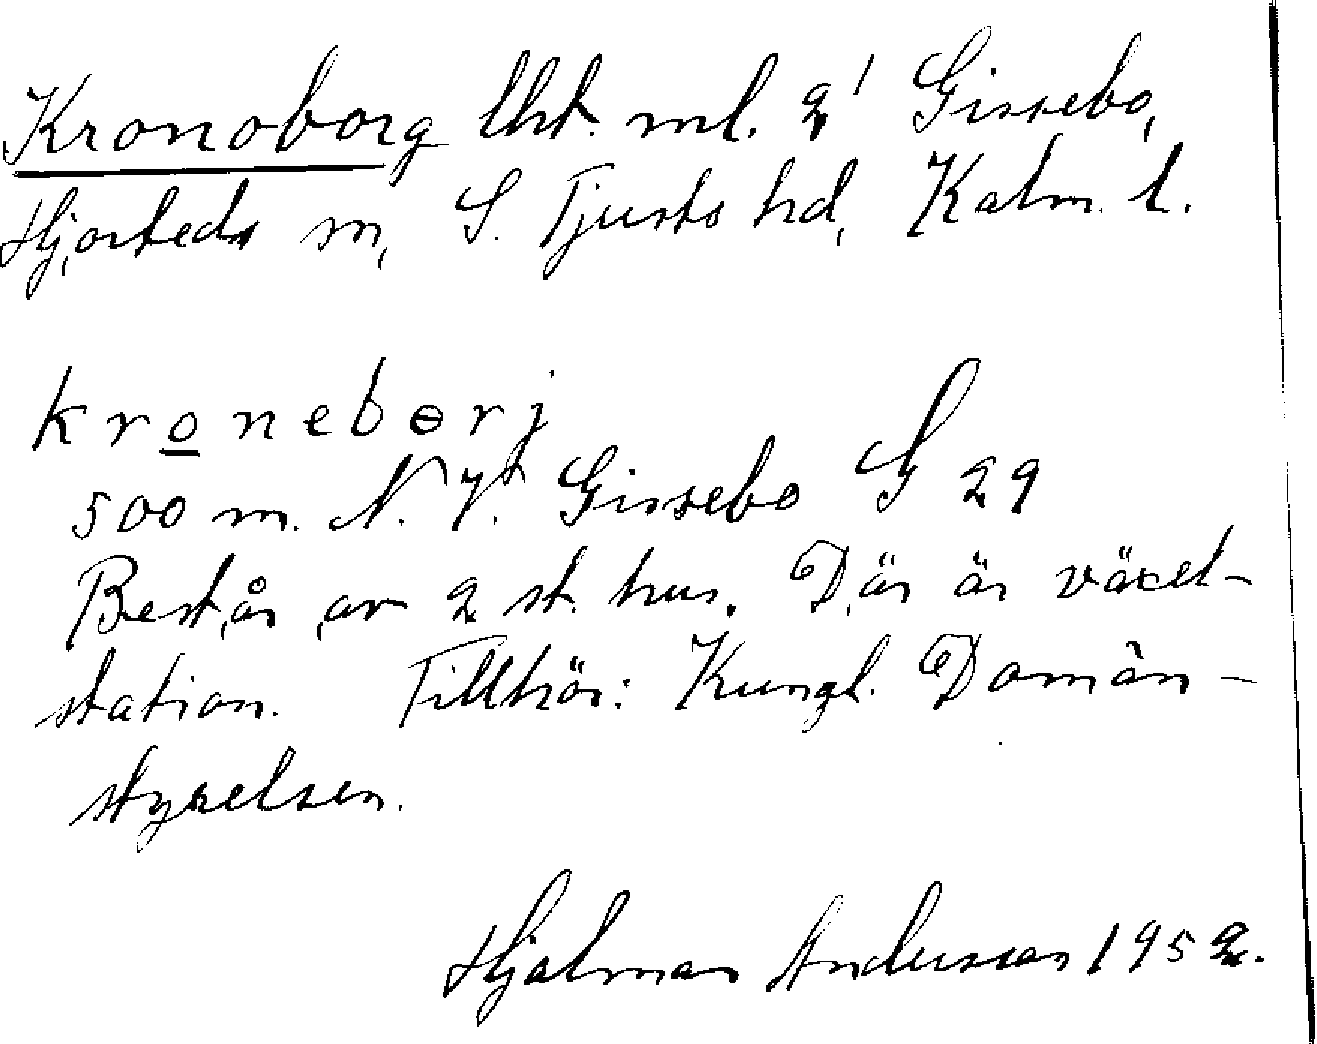 Kronoborg lht. ml. 2' Gissebo,
Hjorteds sn, S. Tjusts hd, Kalm. l.
kroneborj
500 m. N. V. Gissebo G 29
Består av 2 st. hus. Där är växel-
station. Tillhör: Kungl. Domän-
styrelsen.
Hjalmar Andersson 1952.